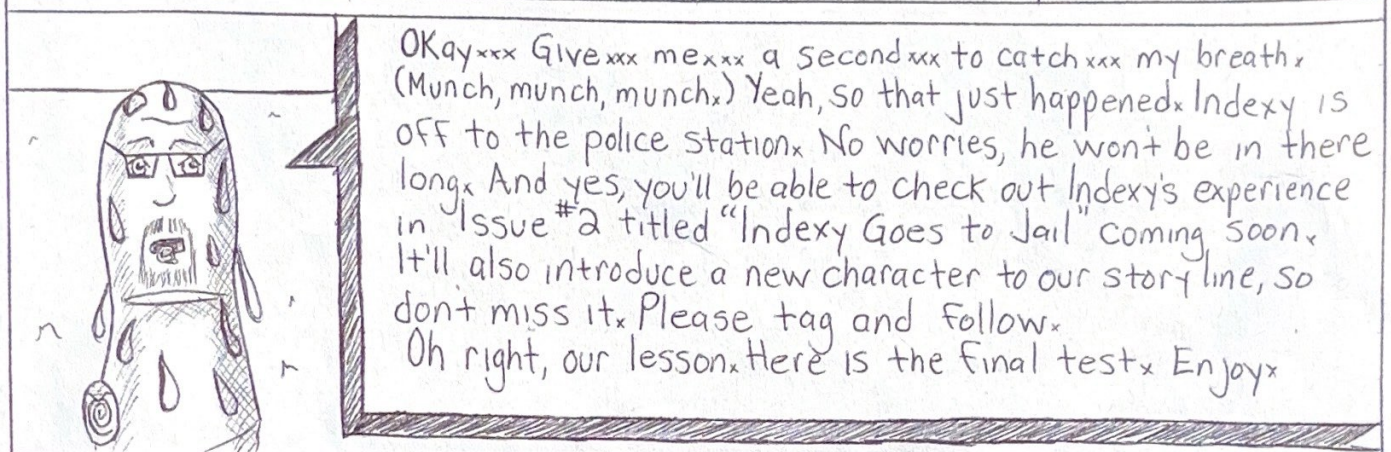 OKayxxx Givexxx mexxx a secondxxx to catchxxx my breathx
(Munch, munch, munchx) Yeah, so that just happenedx Indexy is
off to the police stationx No worries, he won't be in there
longx And yes, you'll be able to check out Indexy's experience
in Issue #2 titled "Indexy Goes to Jail" coming soonx
It'll also introduce a new character to our story line, so
don't miss itx Please tag and followx
Oh right, our lessonx Here is the final testx Enjoyx